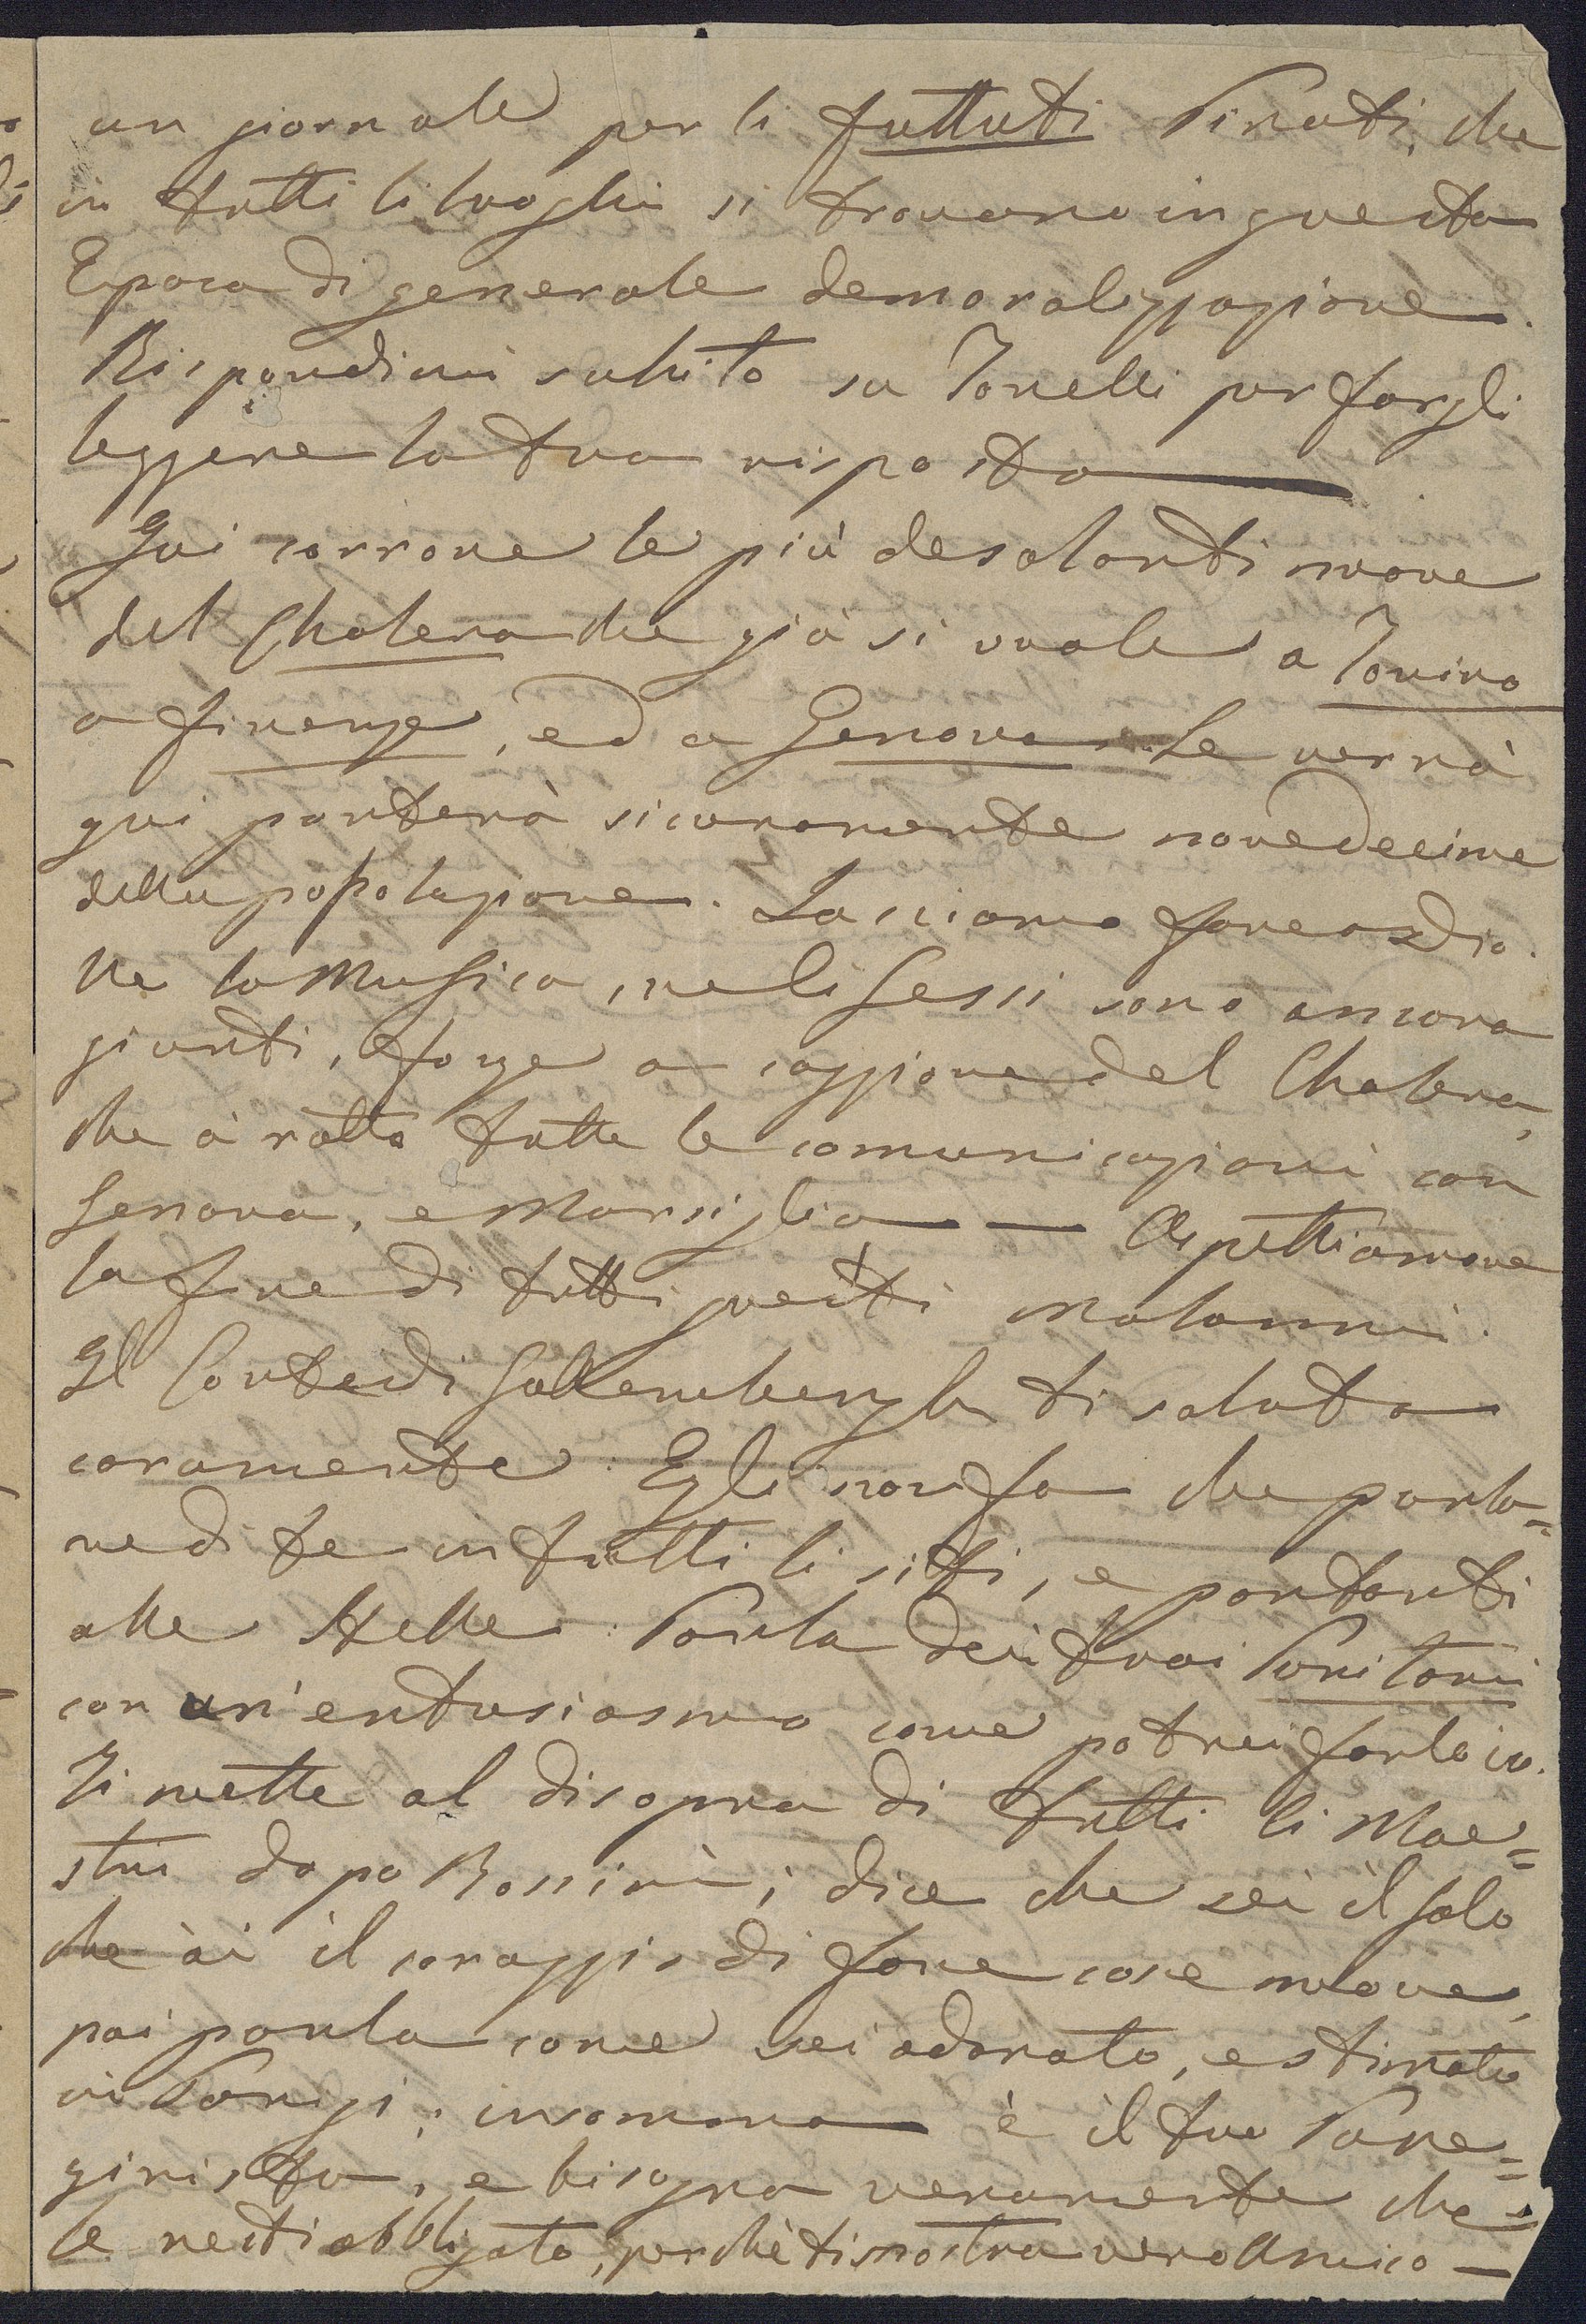 un giornale per li futtuti Pirati, che
in tutti li luoghi si trovano in questa
Epoca di generale demoralizzazione.
Rispondimi subito su Tonelli per fargli
leggere la tua risposta
Qui corrone le più desolanti nuove
del Cholera che già si vuole a Torino
a Firenze, ed a Genova. Se verrà
qui porterà sicuramente nove decime
della popolazione. Lasciamo fare a Dio.
Ne la Musica, ne li Gessi sono ancora
giunti, forze a caggione del Cholera,
che à rotto tutte le comunicazioni con
Genova, e Marsiglia — Aspettiamone
la fine di tutti questi malanni.
Il Conte di Gallembergh ti saluta
caramente. Egli non fa che parla=
re di te in tutti li siti, e portarti
alle stelle. Parla dei tuoi Puritani
con un'entusiasmo come potrei farlo io.
Ti mette al disopra di tutti li Mae=
stri dopo Rossini; dice che sei il solo
che ài il coraggio di fare cose nuove,
poi parla come sei adorato, e stimato
in Parigi; insomma è il tuo Pane=
girista, e bisogna veramente che
le resti obbligato, perchè ti mostra vero Amico —